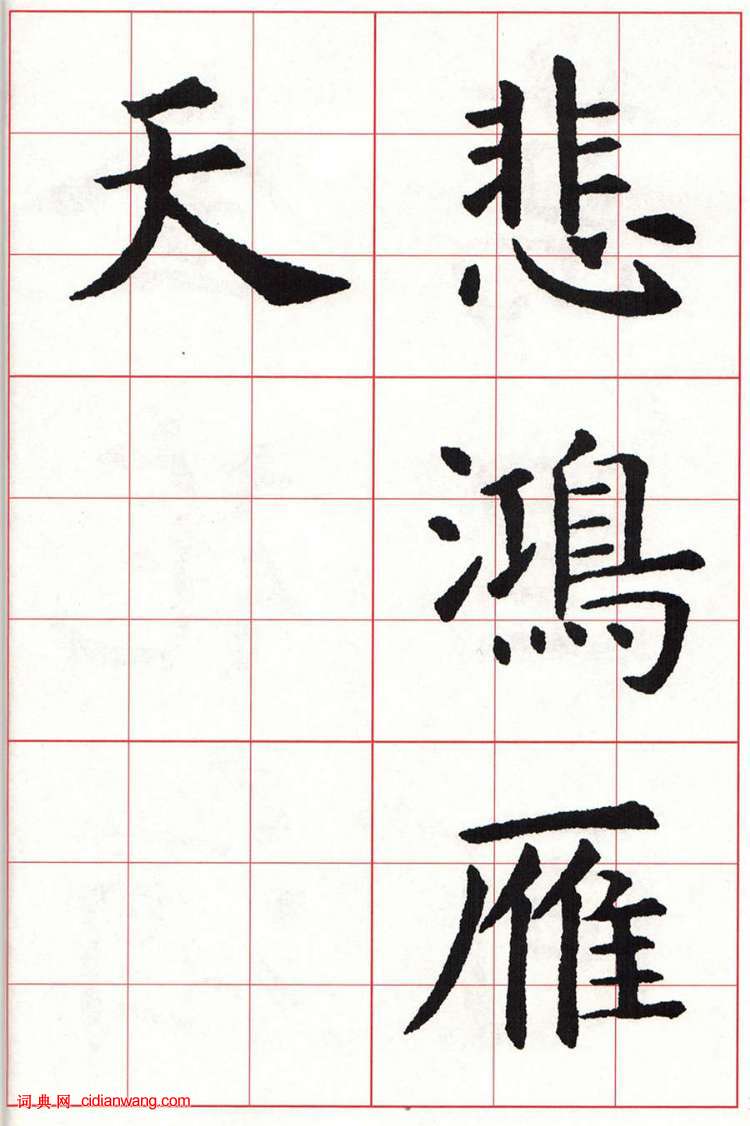 悲鴻雁
天
词典网 cidianwang.com